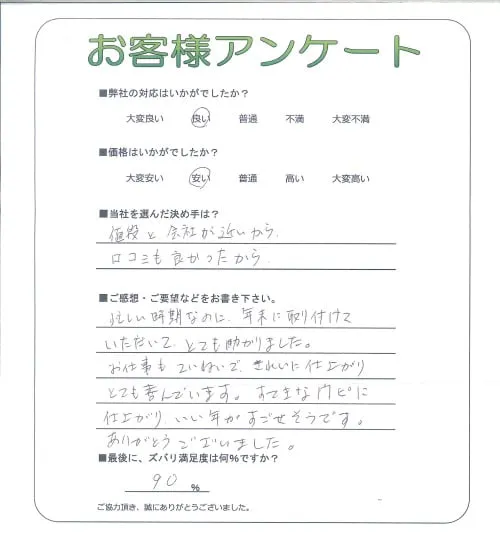 お客様アンケート
■弊社の対応はいかがでしたか？
大変良い 良い 普通 不満 大変不満
■価格はいかがでしたか？
大変安い 安い 普通 高い 大変高い
■当社を選んだ決め手は？
値段と会社が近いから、
口コミも良かったから、
■ご感想・ご要望などをお書き下さい。
忙しい時期なのに、年末に取り付けて
いただいて、とても助かりました。
お仕事もていねいで、きれいに仕上がり
とても喜んでいます。すてきな
仕上がり、いい年がすごせそうです。
ありがとうございました。
■最後に、ズバリ満足度は何％ですか？
90 %
ご協力頂き、誠にありがとうございました。